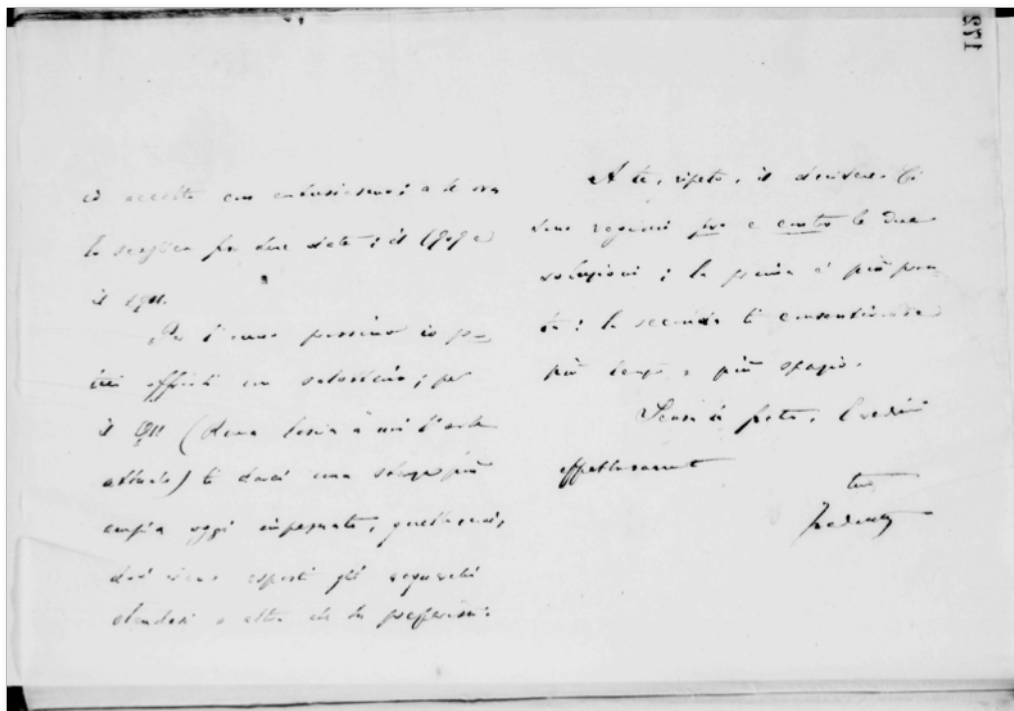 è accolto con entusiasmo; a te ora
la scegliere fra due date; il 1909 e
il 1911.
Per l'anno prossimo io po-
trei offrirti un salottino; per
il 1911 (
attuale) ti darei una più
ampia oggi impegnata, quella cioè,
dove sono esposti gli acquarelli
olandesi o altra che tu preferissi.
A te, ripeto, il decidere. Ci
sono ragioni pro e contro le due
soluzioni; la prima è più pron-
ta; la seconda ti consentirebbe
più tempo e più spazio.
Scusa la fretta, credimi
affettuosamente
tuo